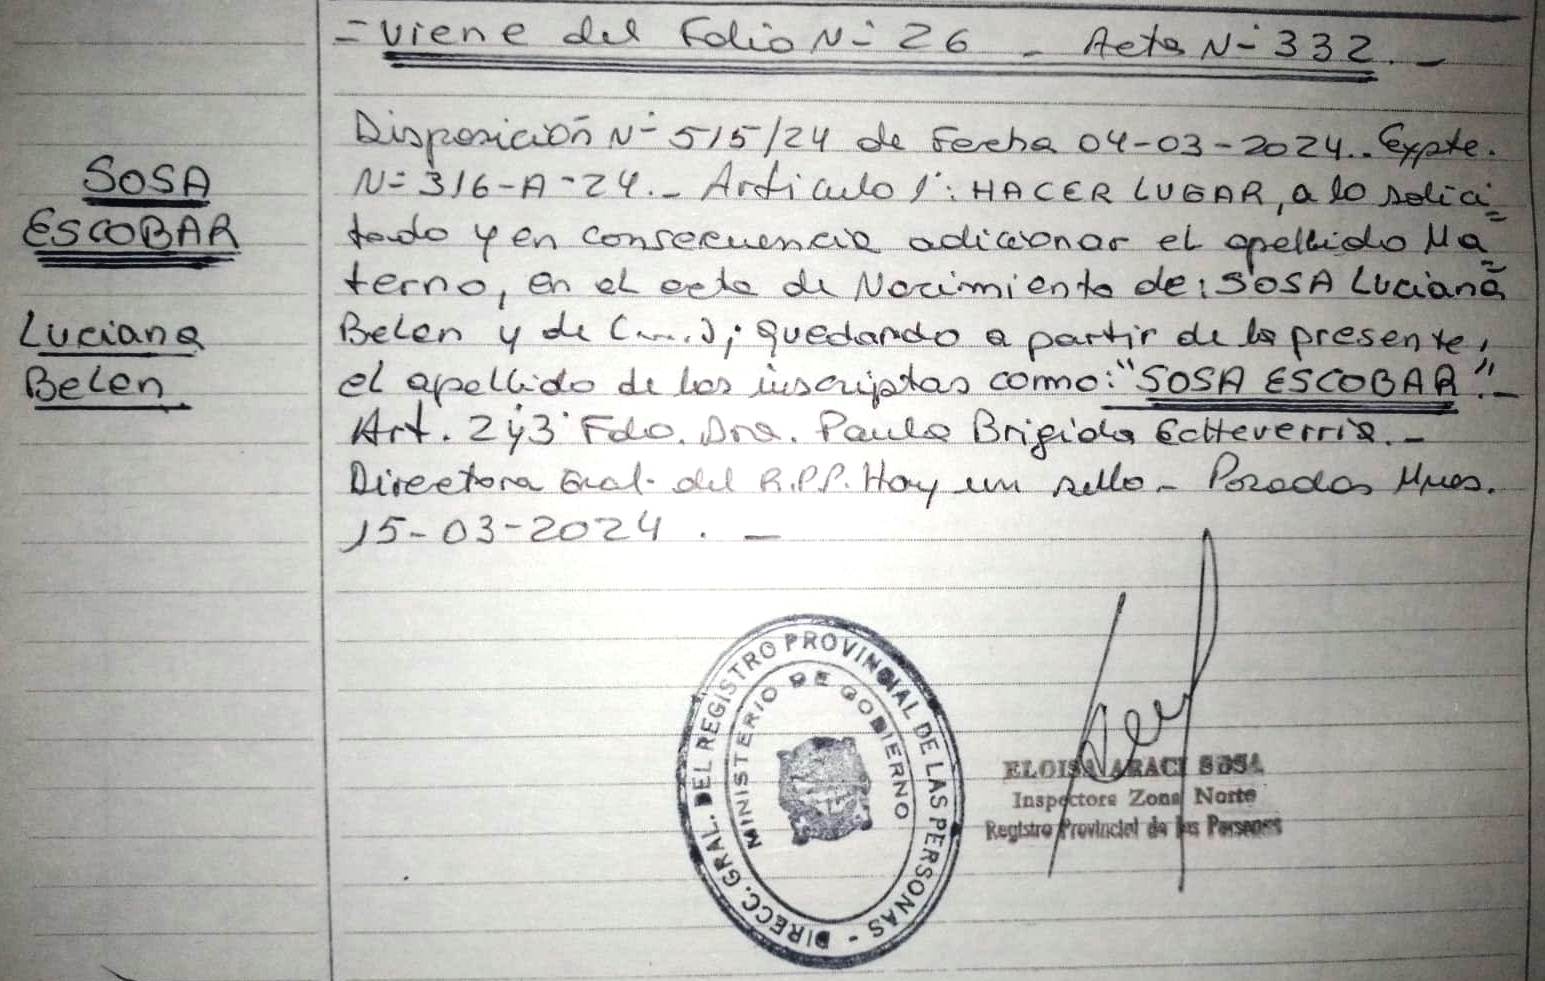 = Viene del Folio N= 26 - Acta N= 332. -
SOSA
ESCOBAR
Luciana
Belen
Disposición N= 515/24 de Fecha 04-03-2024.. Expte.
N= 316-A-24.- Articulo 1°: HACER LUGAR, a lo solici=
tado y en consecuencia adicionar el apellido Ma=
terno, en el acta de Nacimiento de: SOSA Luciana
Belen y de (...); quedando a partir de la presente,
el apellido de las inscriptas como: "SOSA ESCOBAR".-
Art. 2 y 3° Fdo. Dra. Paula Brigida Echeverria.-
Directora Gral. del R.P.P. Hay un sello - Posadas Mnes.
15-03-2024. -
DIRECC. GRAL. DEL REGISTRO PROVINCIAL DE LAS PERSONAS -
MINISTERIO DE GOBIERNO
ELOISA ARACI SOSA
Inspectora Zona Norte
Registro Provincial de las Personas